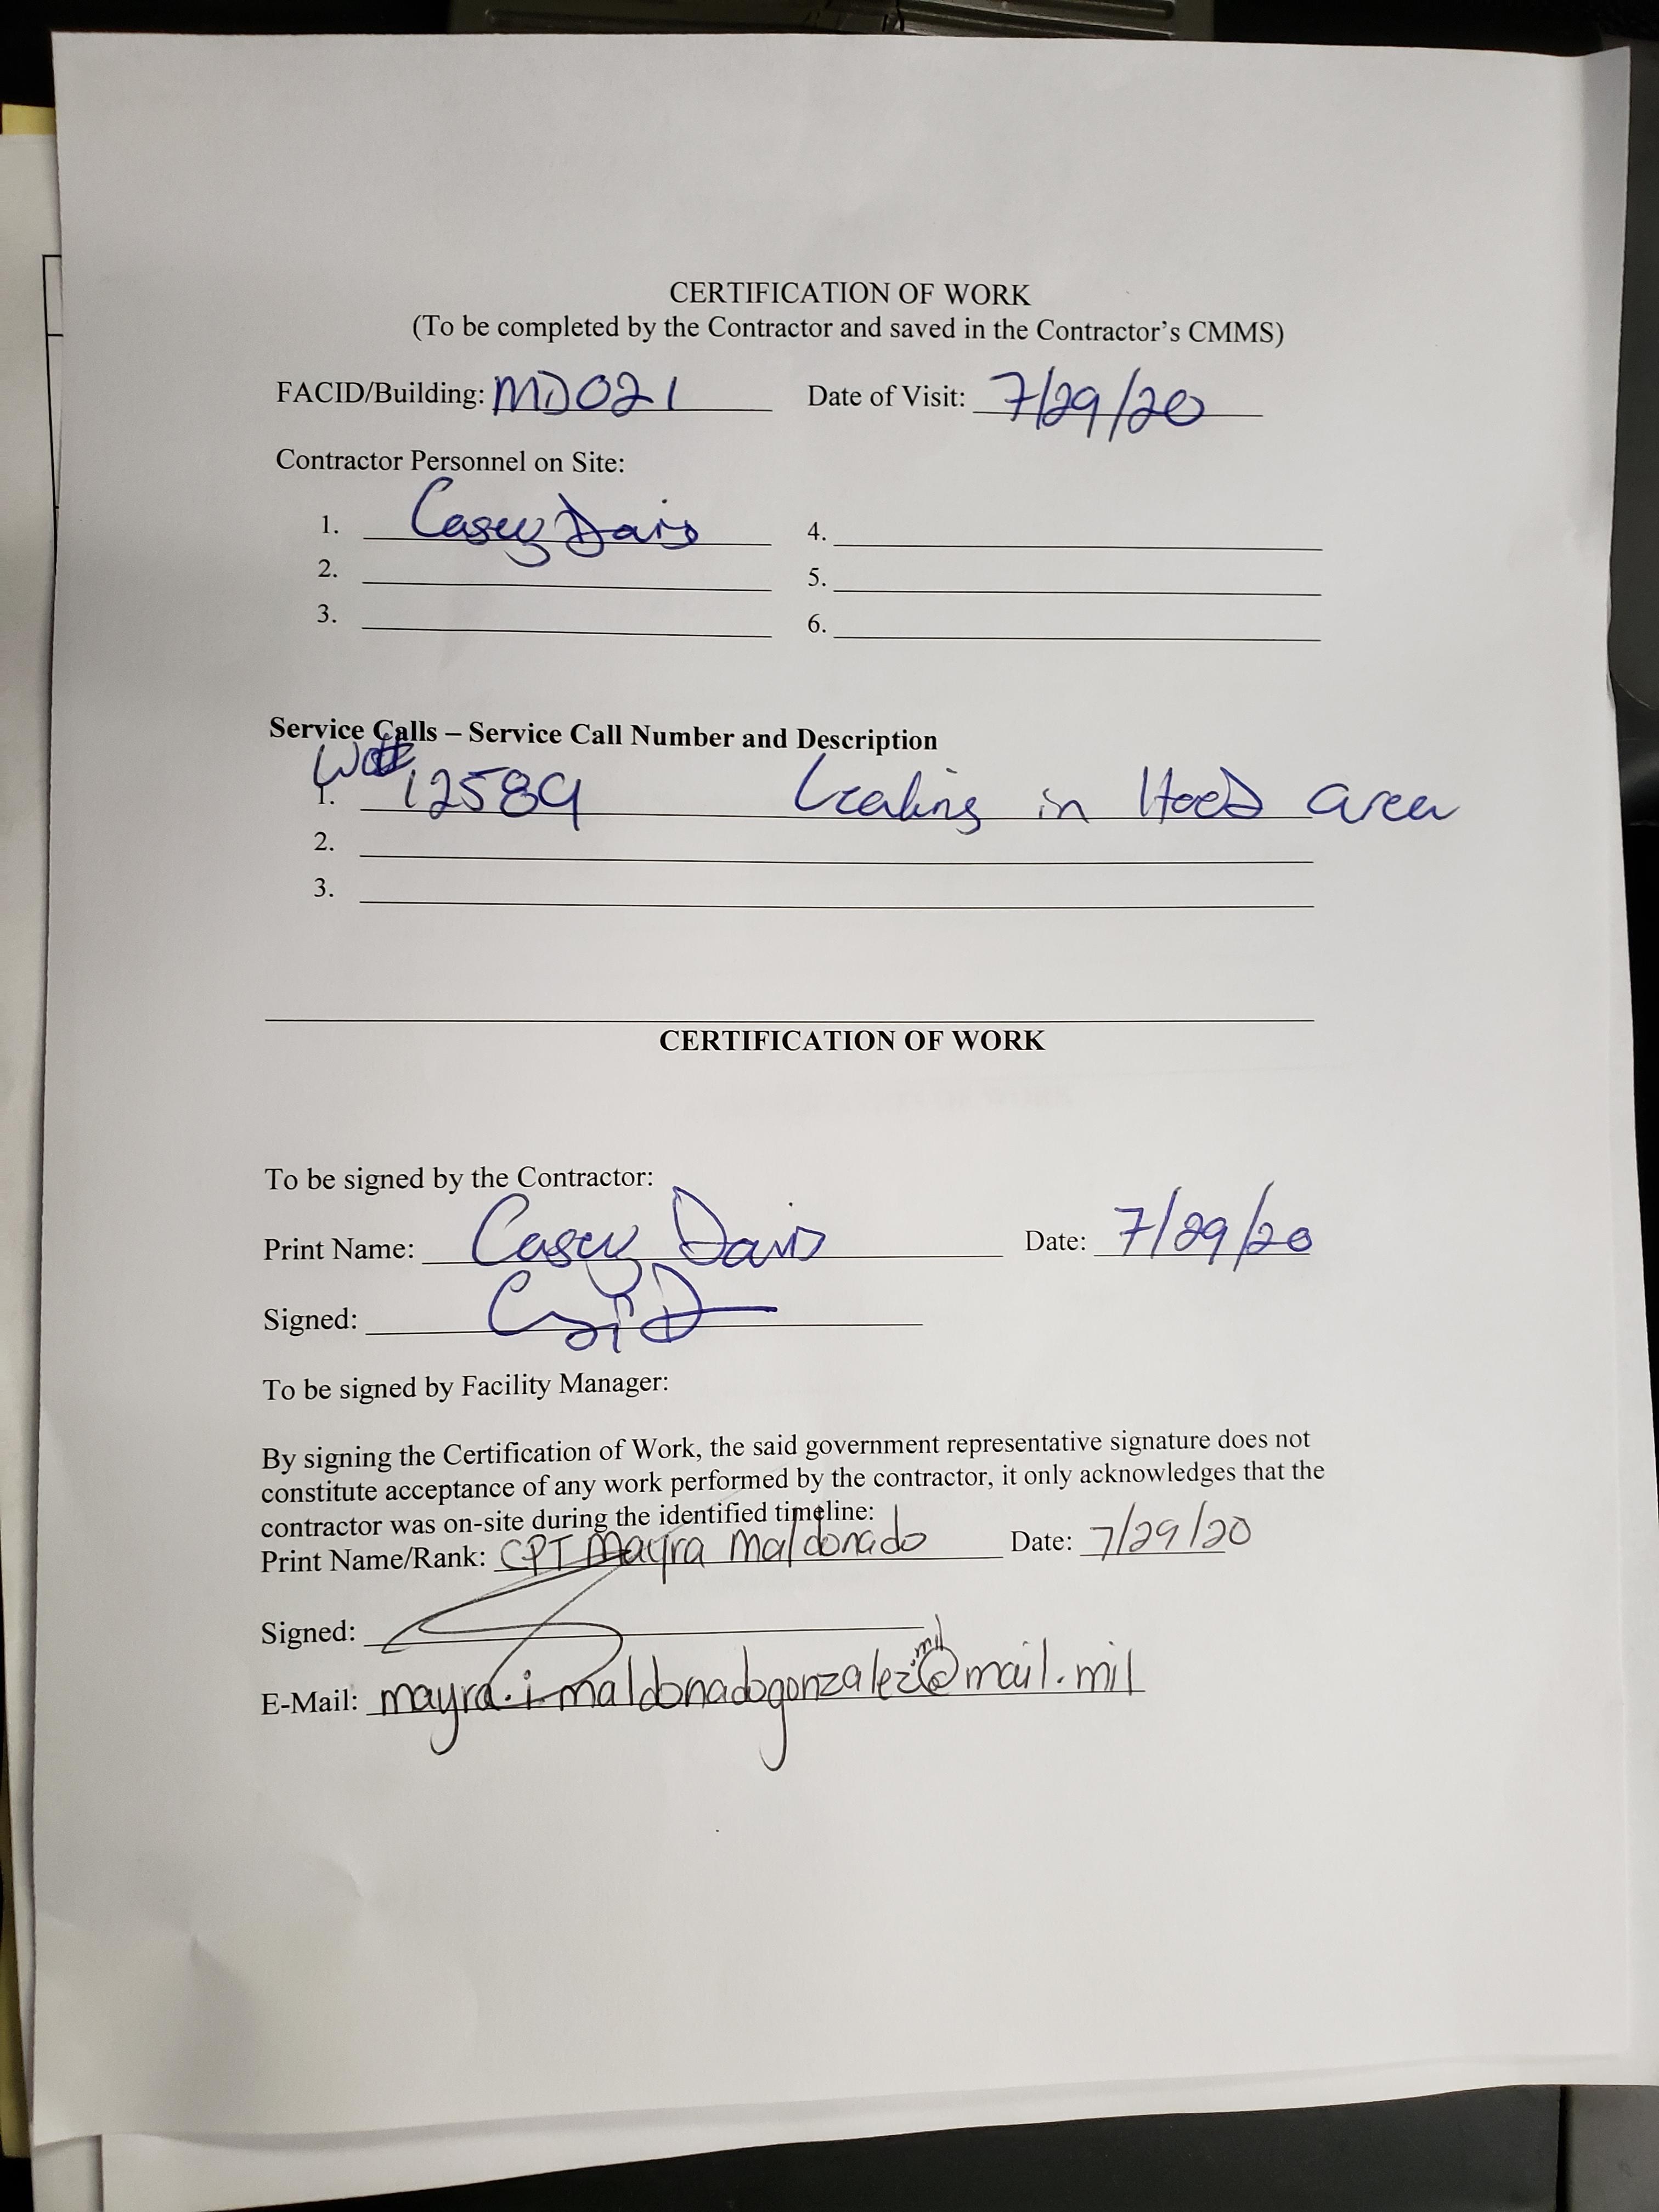 CERTIFICATION OF WORK
(To be completed by the Contractor and saved in the Contractor's CMMS)
FACID/Building: MD021 Date of Visit: 7/29/20
Contractor Personnel on Site:
1. Casey Davis 4.
2. 5.
3. 6.
Service Calls – Service Call Number and Description
WO#
1. 12589 Leaking in Hood area
2.
3.
CERTIFICATION OF WORK
To be signed by the Contractor:
Print Name: Casey Davis Date: 7/29/20
Signed:
To be signed by Facility Manager:
By signing the Certification of Work, the said government representative signature does not
constitute acceptance of any work performed by the contractor, it only acknowledges that the
contractor was on-site during the identified timeline:
Print Name/Rank: CPT Mayra Maldonado Date: 7/29/20
Signed:
E-Mail: mayra.i.maldonadogonzalez.mil@mail.mil